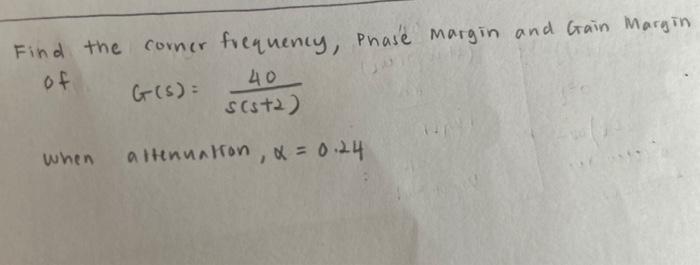 Find the corner frequency, Phase Margin and Gain Margin
of G(s) = 40 / s(s+2)
when attenuation, α = 0.24